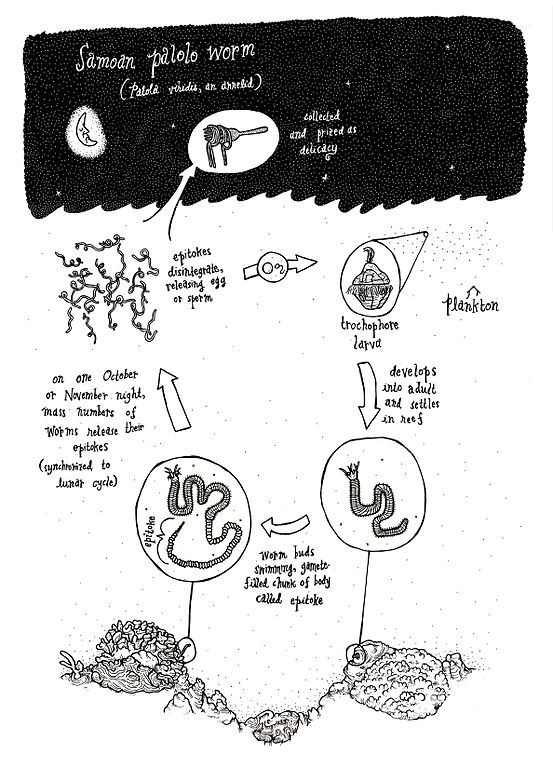 Samoan palolo worm
(Palola viridis, an annelid)
collected
and prized as
delicacy
epitokes
disintegrate,
releasing egg
or sperm
trochophore
larva
plankton
develops
into adult
and settles
in reef
worm buds
swimming, gamete-
filled chunk of body
called epitoke
epitoke
on one October
or November night,
mass numbers of
worms release their
epitokes
(synchronized to
lunar cycle)